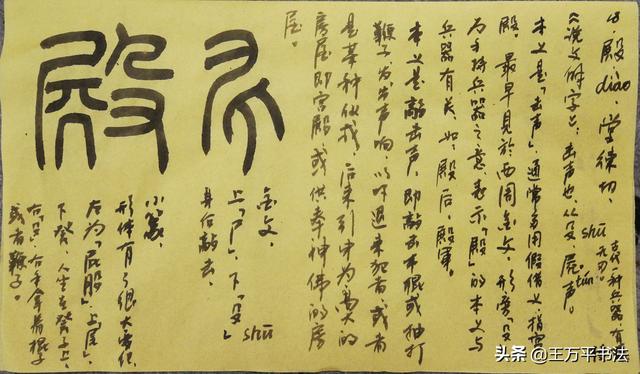 殿 diào,堂练切,
《说文解字》:击声也,从殳,屍声。
shū
古代一种兵器,有
无刃。
tún
本义是「击声」,通常多用假借义,指宫
殿。最早见於西周金文,形旁「殳」
为手持兵器之意,表示「殿」的本义与
兵器有关,如,殿后,殿军。
本义是敲击声,即敲击木棍或抽打
鞭子发出声响,以吓退来犯者,或者
是某种仪式,后来引申为高大的
房屋即宫殿,或供奉神佛的房
屋。
金文,
上「尸」,下「殳」
shū
身后敲击,
小篆,
形体有了很大变化
左为「屁股」,上尾,
下凳,人坐在凳子上,
右「殳」,右手拿着棍子
或者鞭子。
殿
头条 @王万平书法